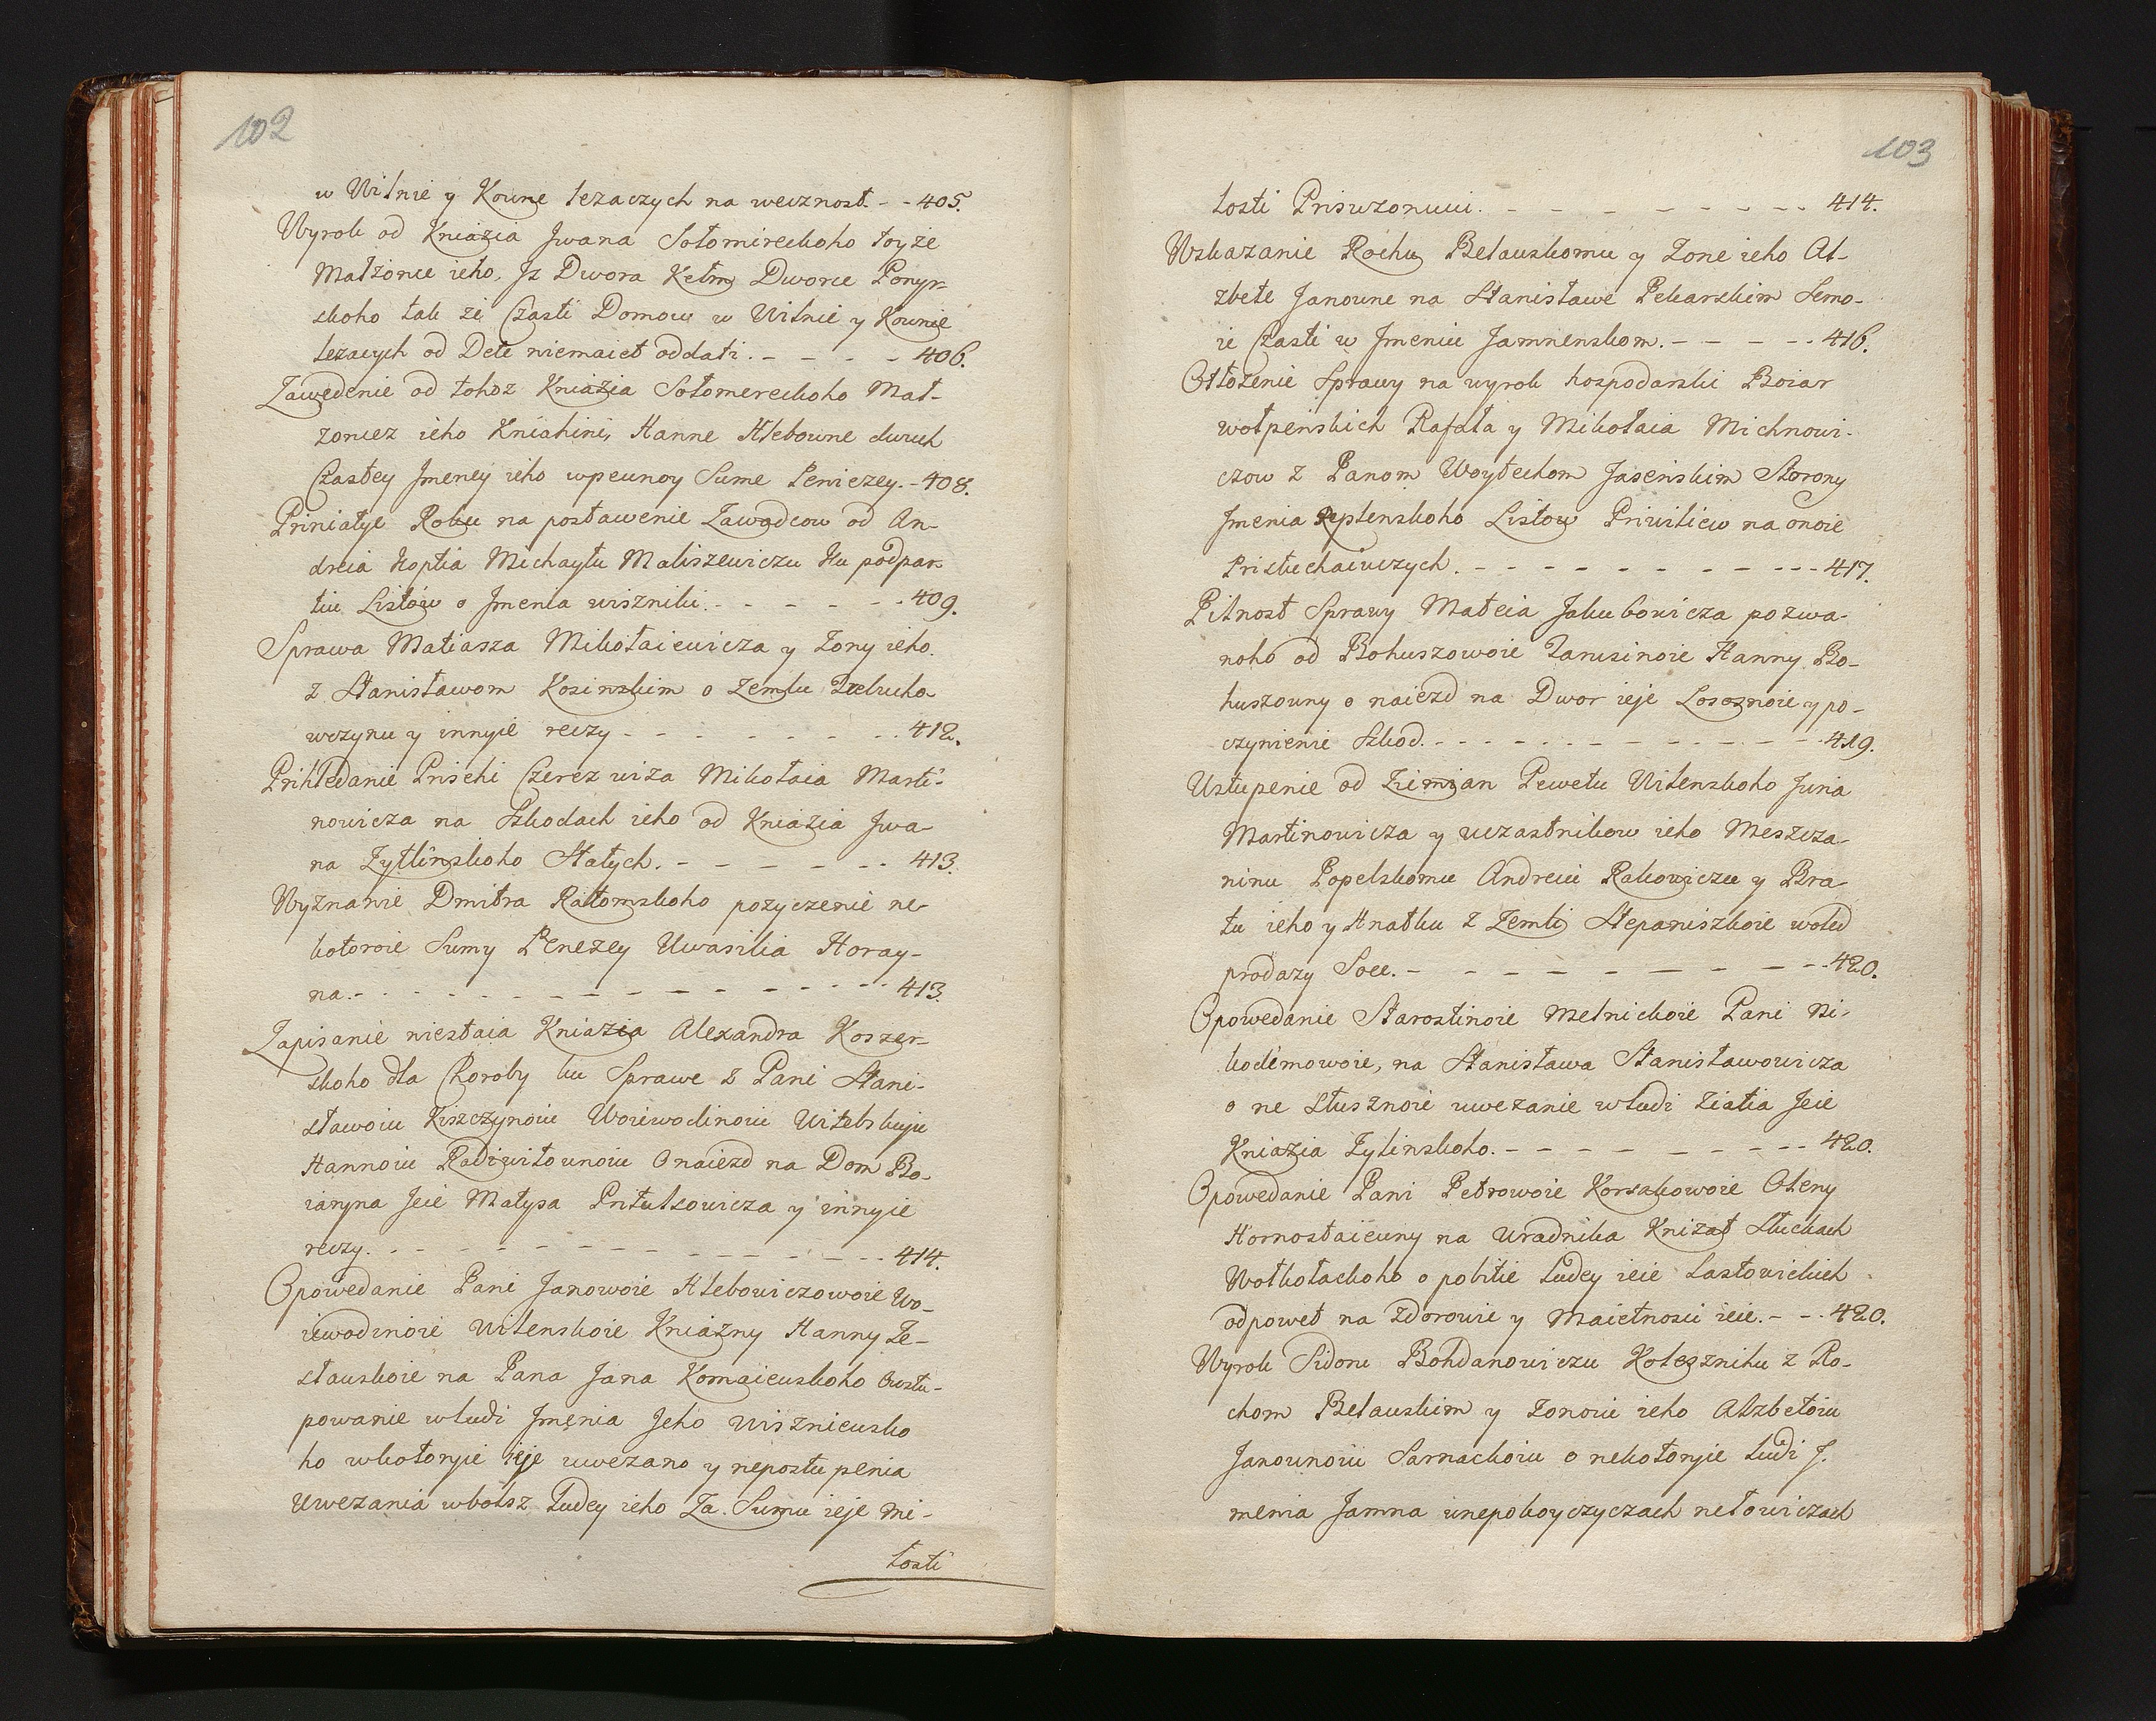 102
w Wilnie y Kowne lezaczych na wecznost. - - 405.
Wyrok od Kniazia Jwana Sołomireckoho toyże
Małżonce ieho, Jz Dwora Kelm Dworce Ponyr-
skoho tak ze Czasti Domow w Wilnie y Kownie
lezacych od Dete niemaiet oddati. - - - - 406.
Zawedenie od tohoz Kniazia Sołomereckoho Mał-
zoncez ieho Kniahini, Hanne Hlebowne dwuch
Czastey Jmeney ieho wpewnoy Sume Peniezey. - 408.
Priniatye Roku na postawenie Zawodcow od An-
dreia Koptia Michayłu Maliszewiczu Ku podpar
tiu Listów o Jmenia wiszniki. - - - - - - 409.
Sprawa Matiasza Mikołaiewicza y Zony ieho.
z Stanisławom Kosinskim o Zemlu
wczynu y innyie reczy - - - - - - - 412.
Prihledanie Prischi Czerez wiza Mikołaia Marti-
nowicza na Szkodach ieho od Kniazia Jwa-
na Zytlinskoho Stałych. - - - - - - - 413.
Wyznanie Dmitra Rałtomskoho pozyczenie ne-
kotoroie Sumy Penezey Uwasilia Horay-
na. - - - - - - - - - - - - - - 413.
Zapisanie niestaia Kniazia Alexandra Koszer-
skoho dla Choroby ku Sprawe z Pani Stani-
sławoiu Kiszczynoiu Woiewodinoiu Witebskuju
Hannoiu Radiwiłounoiu Onaiezd na Dom Bo-
iaryna Jeie Matysa Pritułsowicza y innyie
reczy. - - - - - - - - - - - - - - 414.
Opowedanie Pani Janowoie Hlebowiczowoie Wo-
iewodinoie Wilenskoie Kniazny Hanny Ze-
sławskoie na Pana Jana Komaiewskoho Owstu-
powanie wludi Jmenia Jeho Wiszniewsko
ho wkotoryie ieje uwezano y nepostu penia
Uwezania wbolsz Ludey ieho Za. Sumu ieje mi-
losti
103
losti Priswzonuui. - - - - - - - - - 414.
Wskazanie Rochu Beławskomu y Zone ieho Al-
zbete Janowne na Stanisławe Pekarskim Semo-
ie Czasti w Jmeniu Jamnenskom. - - - - - 416.
Otłożenie Sprawy na wyrok hospodarski Boiar
wołpeńskich Rafała y Mikołaia Michnowi-
czow z Panom Woytechom Jaseńskim Storony
Jmenia Replenskoho Listow Priwiliew na onoie
Prisłuchaiuczych. - - - - - - - - - - 417.
Pilnost Sprawy Mateia Jakubowicza pozwa-
noho od Bohuszowoie Tarusinoie Hanny Bo-
huszowny o naiezd na Dwor ieje Lososnoie y po-
czynienie Szkod. - - - - - - - - - - - 419.
Ustupenie od Ziemian Pewetu Wilenskoho Juria
Martinowicza y uczastnikow ieho Meszcza-
ninu Popelskomu Andreiu Rakowiczu y Bra-
tu ieho y Hnatku z Zemli Stepaniszkoie woled
prodazy Soee. - - - - - - - - - - 420.
Opowedanie Starostinoie Melnickoie Pani Ni-
kodémowoie, na Stanisława Stanisławowicza
o ne słusznoie uwezanie wludi Ziatia Jeie
Kniazia Zylinskoho. - - - - - - - - 420.
Opowedanie Pani Petrowoie Korsakowoie Oleny
Hornostaiewny na Uradnika Knizat Słuckach
Wołkołackoho o pobitie Ludey ieie Lastowickich
odpowet na zdorowie y Maietnosci ieie. - - 420.
Wyrok Sidoru Bohdanowiczu Kolesznihu z Ro-
chom Beławskim y Zonoiu ieho Alzbetoiu
Janownoiu Sarnackoiu o nekotoryie Ludi J.
menia Jamna unepokoyczyczach netowiczach